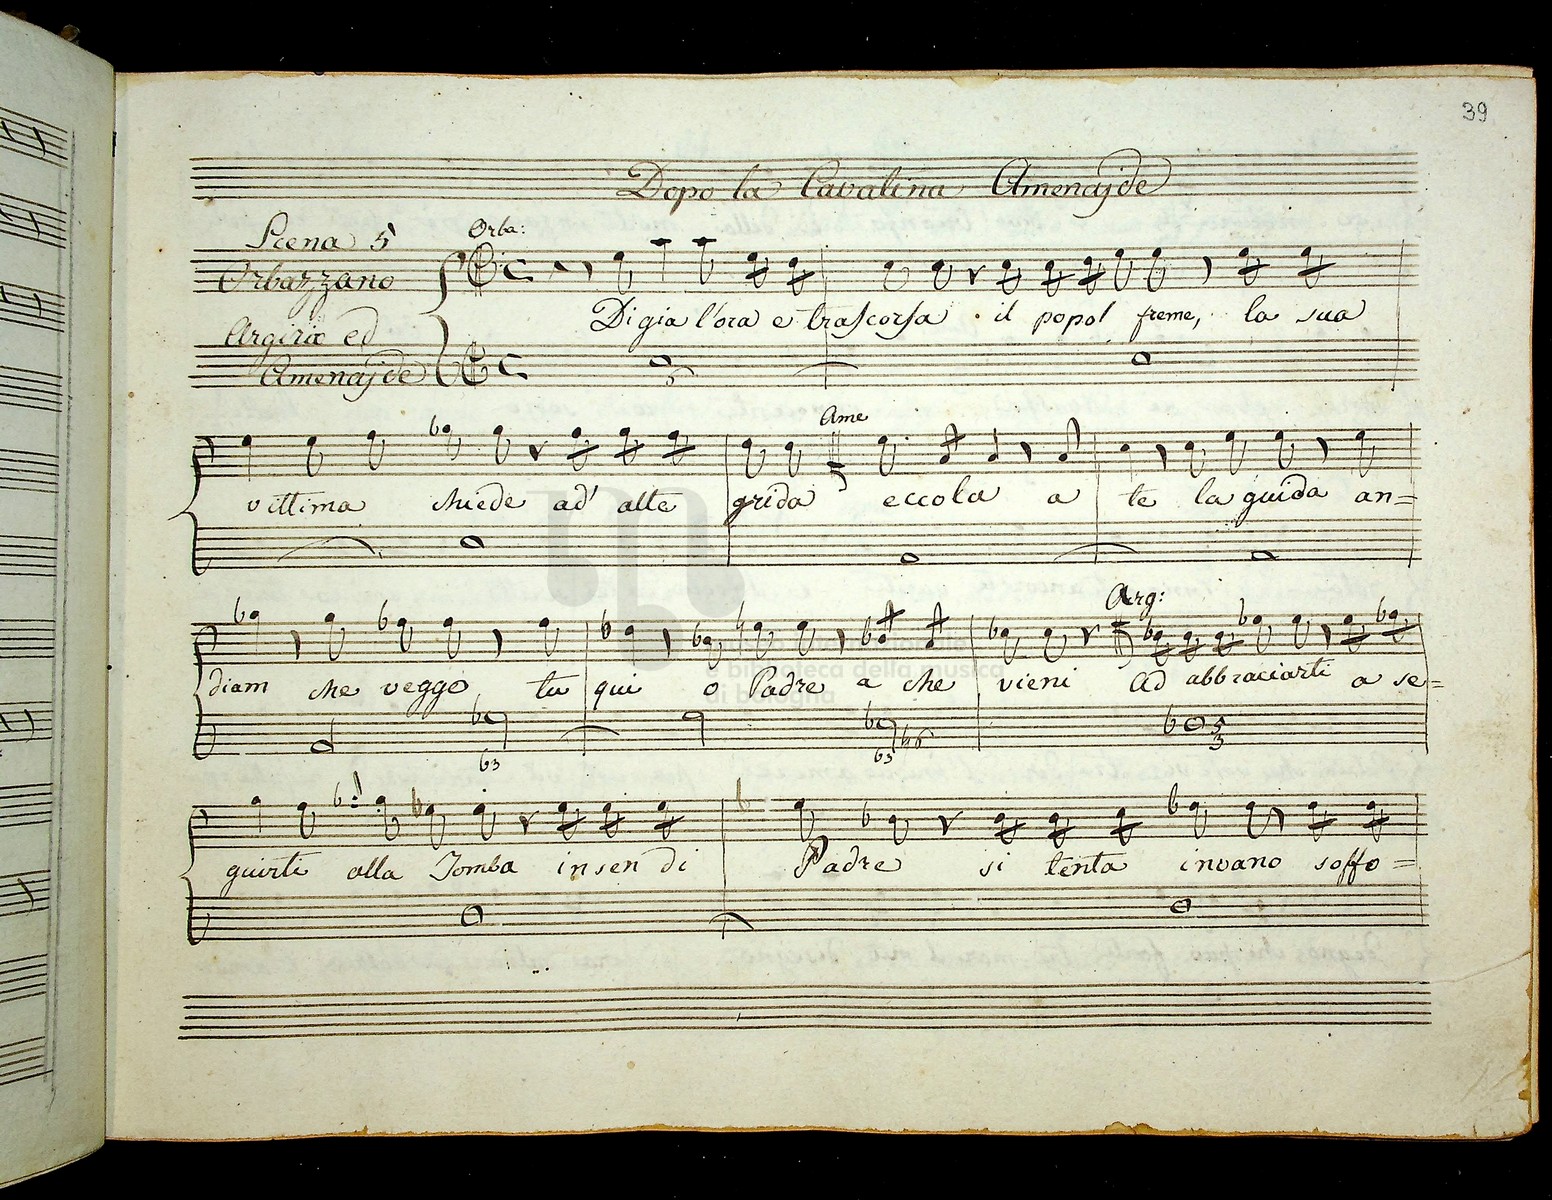 39
Dopo la Cavatina Amenajde
Scena 5
Orbazzano
Argirio ed
Amenajde
Orba:
Di gia l'ora e trascorsa il popol freme, la sua
5
Ame
vittima chiede ad' alte grida eccola a te la guida an=
Arg:
diam che veggo, tu qui o Padre a che vieni ad abbraciarti a se=
b3 b3 5 3
guirti alla Tomba in sen di Padre si tenta invano soffo=
museo internazionale
e biblioteca della musica
di bologna